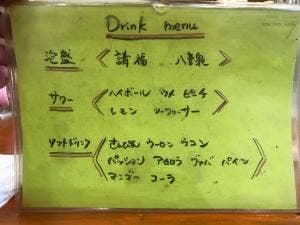 Drink menu
泡盛 請福 八重泉
サワー ハイボール ウメ
レモン シークヮーサー
ソフトドリンク さんぴん ウーロン ウコン
パッション アセロラ グァバ パイン
マンゴー コーラ